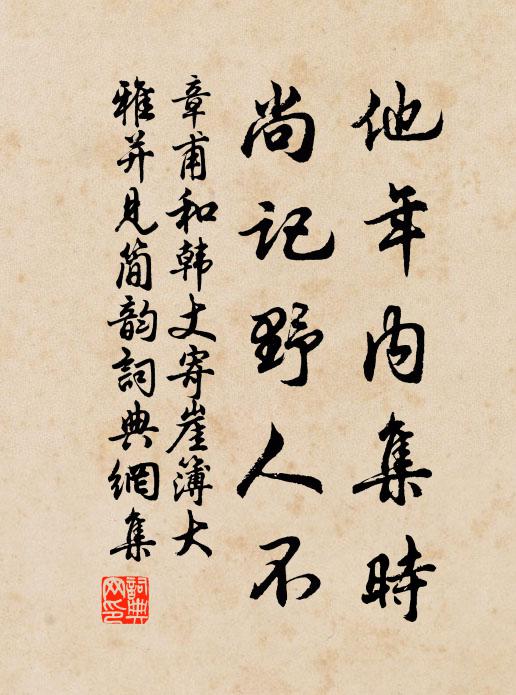 他年内集時
尚记野人不
章甫和韩丈寄崖簿大
雅并見简韵詞典網集
詞典网印